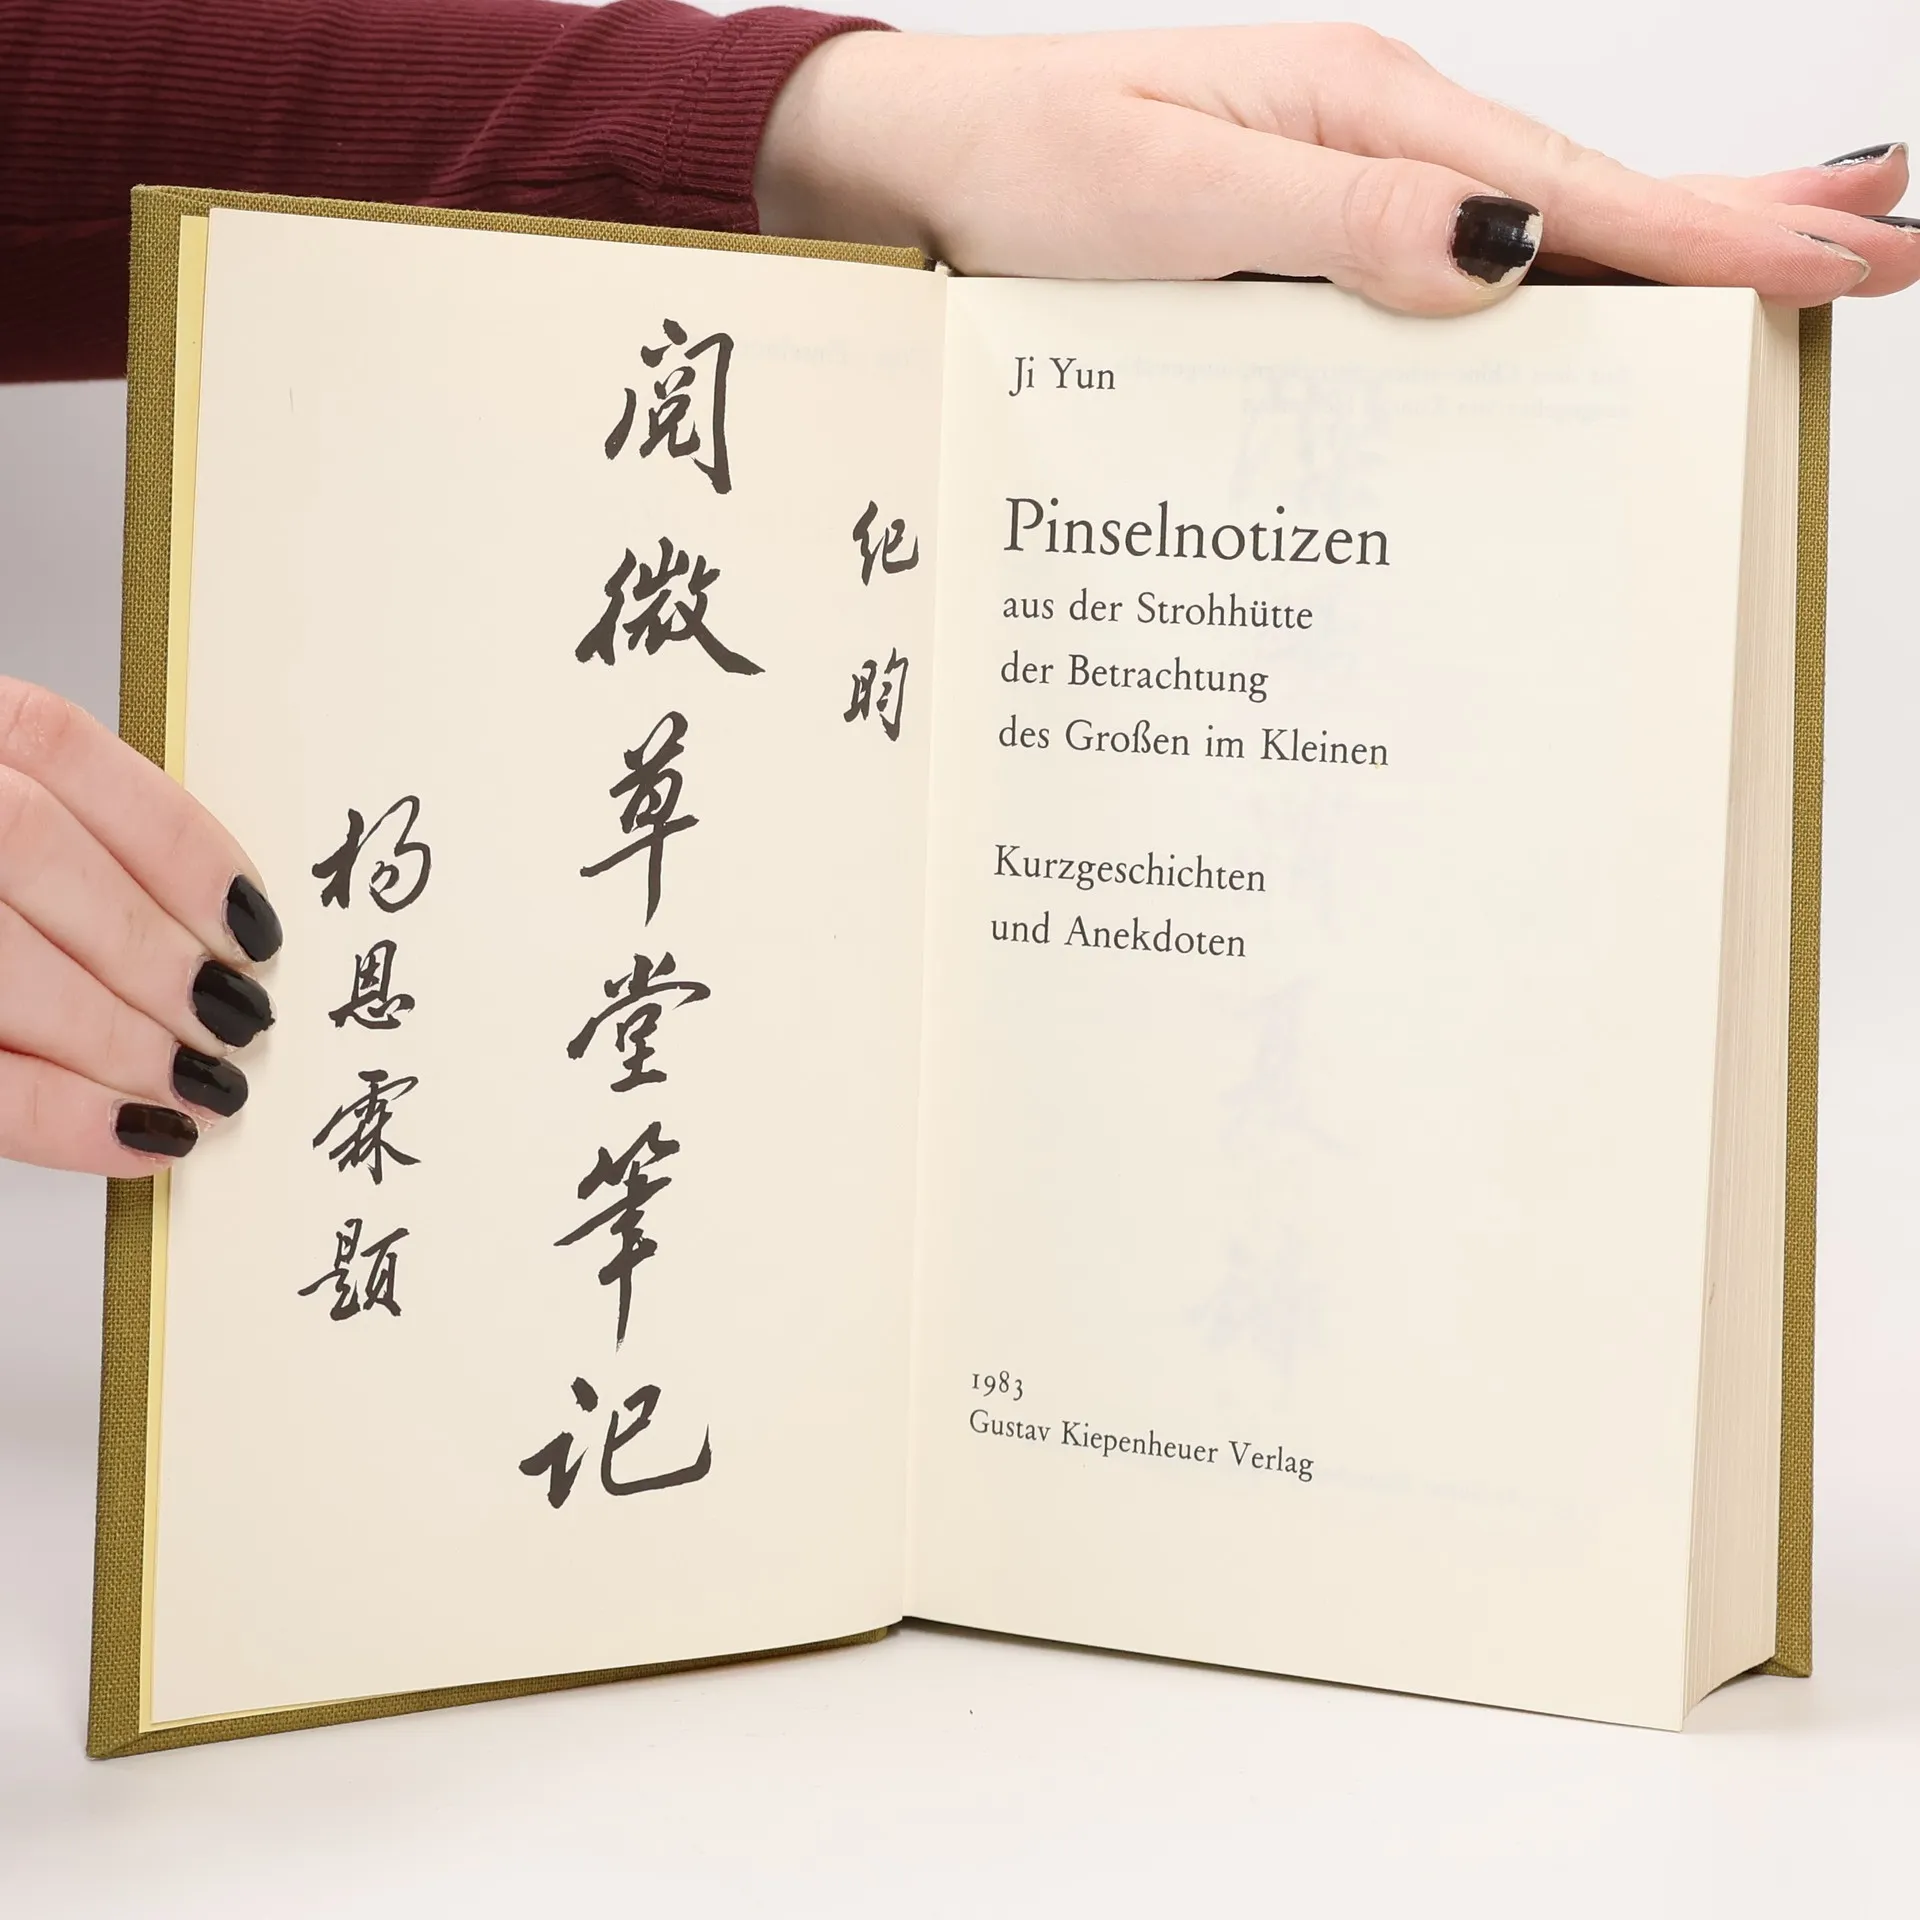 纪昀
阅微草堂筆记
杨恩霖题
Ji Yun
Pinselnotizen
aus der Strohhütte
der Betrachtung
des Großen im Kleinen
Kurzgeschichten
und Anekdoten
1983
Gustav Kiepenheuer Verlag